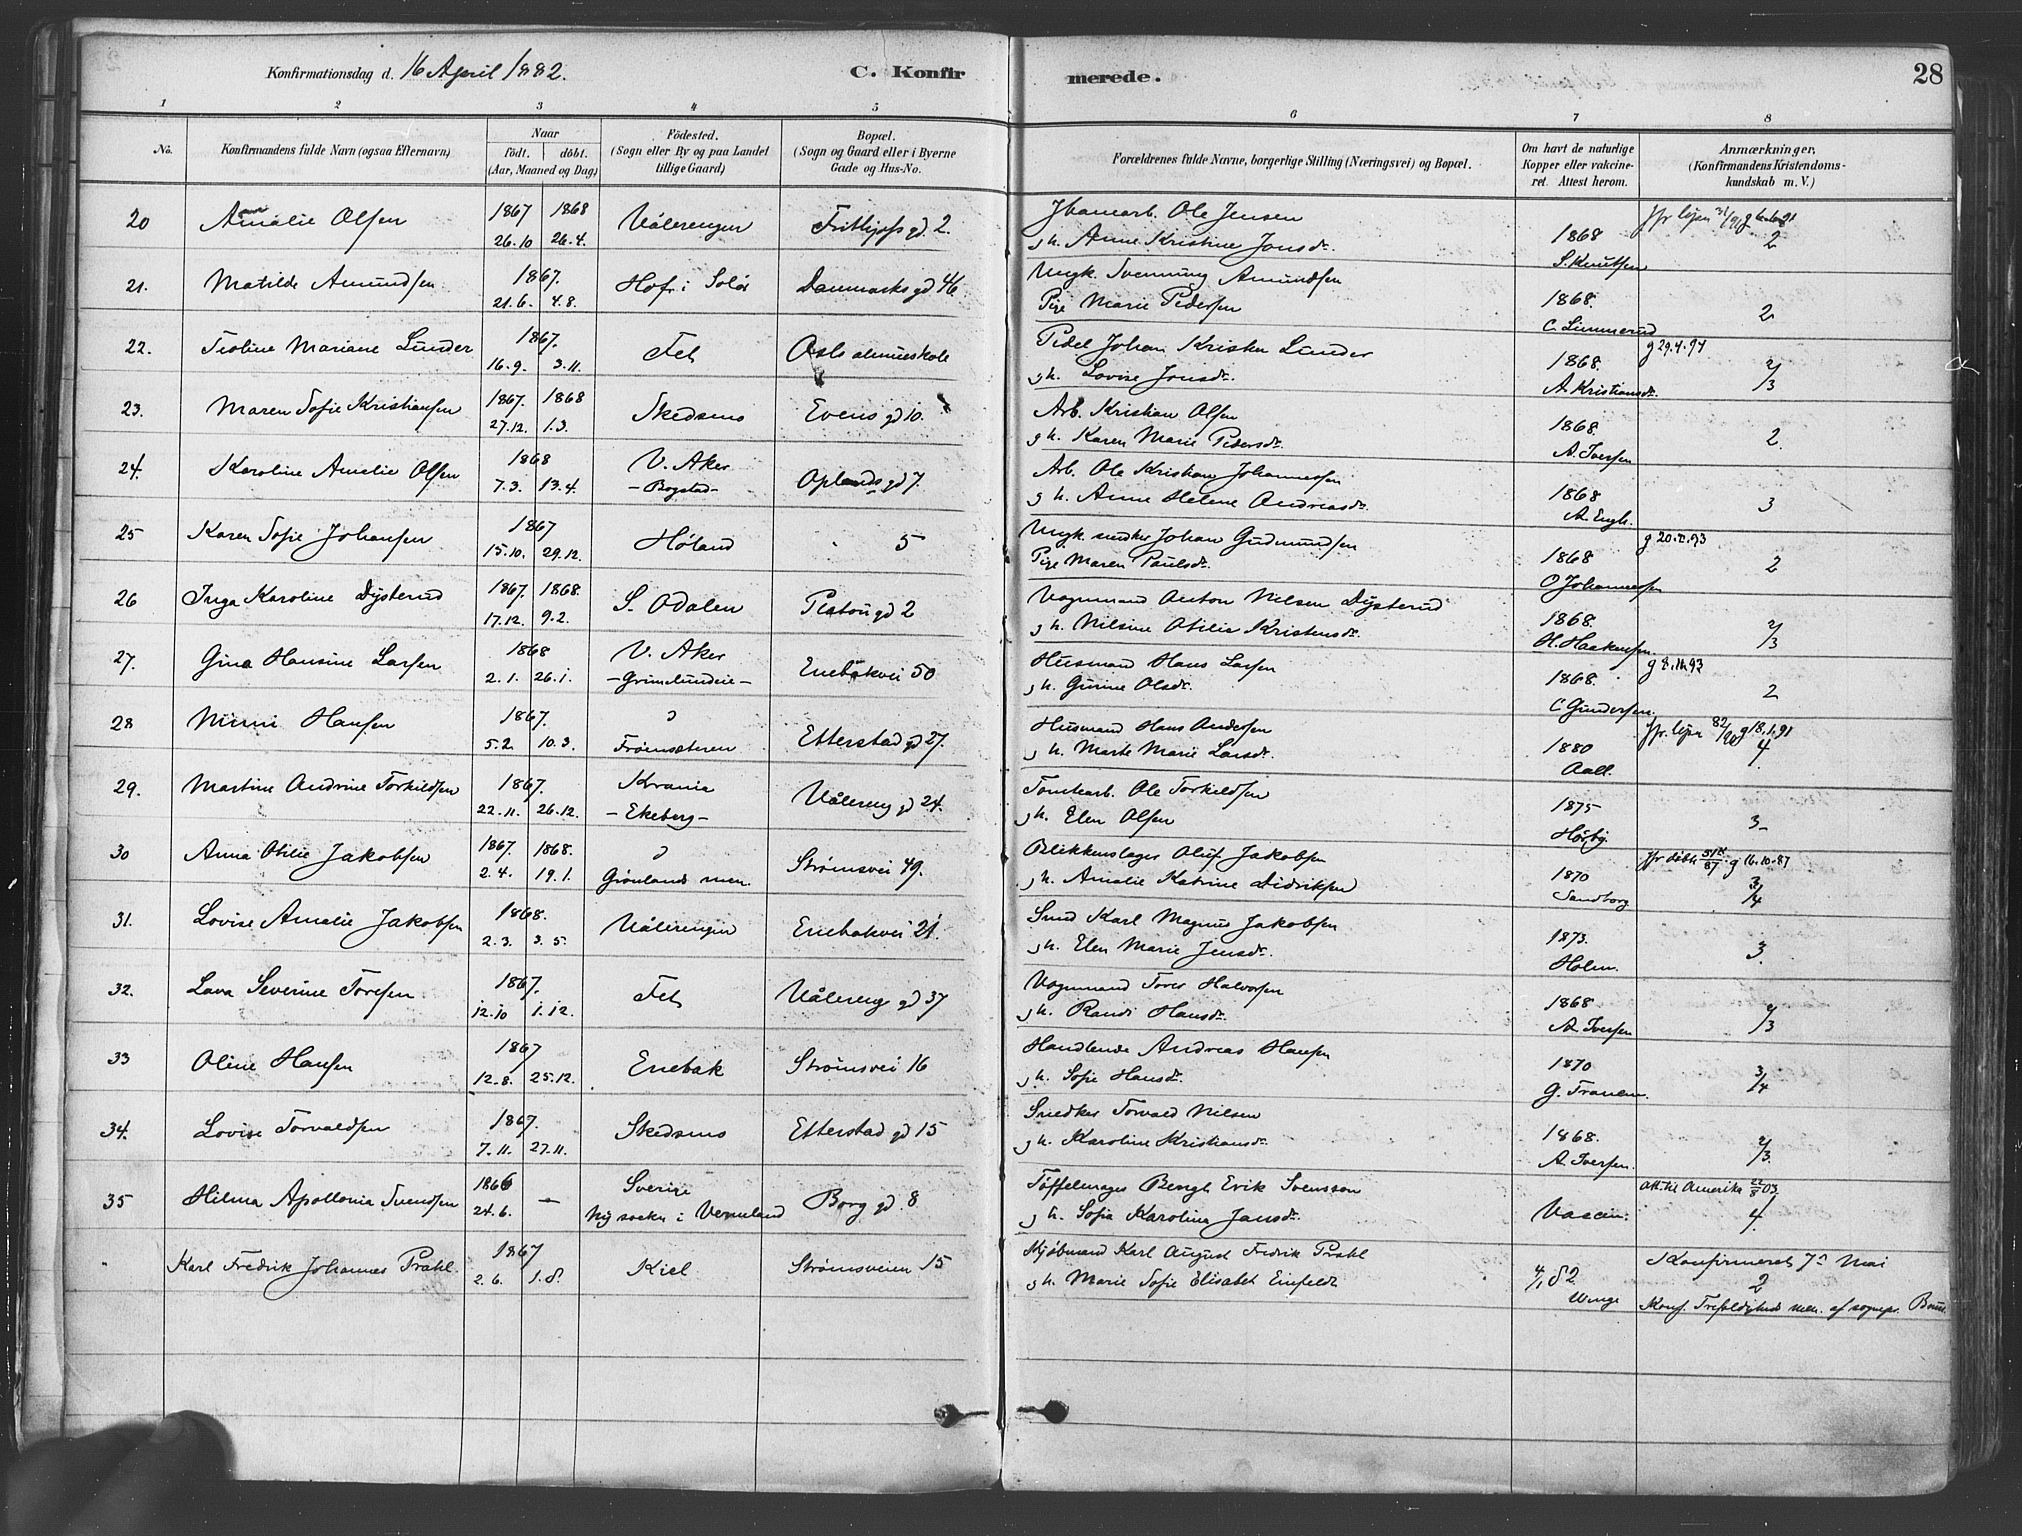 Konfirmationsdag d. 16 April 1882.
C. Konfir
merede.
28
1 2 3 4 5 6 7 8
No.
Konfirmandens fulde Navn (ogsaa Efternavn)
Naar
födt. döbt.
(Aar, Maaned og Dag)
Födested.
(Sogn eller By og paa Landet
tillige Gaard)
Bopæl.
(Sogn og Gaard eller i Byerne
Gade og Hus-No.
Forældrenes fulde Navne, borgerlige Stilling (Næringsvei) og Bopæl.
Om havt de naturlige
Kopper eller vakcine-
ret. Attest herom.
Anmærkninger.
(Konfirmandens Kristendoms-
kundskab m. V.)
20 Amalie Olsen 1867 26.10 1868 26.4. Vålerengen Frithjofs gd 2.
Ole Jensen
g h. Anne Kristine Jonsdr.
1868 S. Knutsen
2
21. Matilde Amundsen 1867. 21.6. 4.8. Hof i Solør Danmarks gd 46
Ungk. Svenning Amundsen
Pige Marie Pedersen
1868. C. Limmerud
2
22. Tioline Mariane Lunder 1867. 16.9. 3.11. Fet Oslo almueskole
Pedel Johan Kristen Lunder
g h. Lovise Jonsdr.
1868. A. Kristiansdr.
g 29.4.94
2/3
23. Maren Sofie Kristiansen 1867. 27.12. 1868 1.3. Skedsmo Evens gd 10.
Arb. Kristian Olsen
g h. Karen Marie Pedersdr.
1868. A. Iversen
2
24. Karoline Amalie Olsen 1868 7.3. 13.4. V. Aker - Bogstad - Oplands gd 7.
Arb. Ole Kristian Johannessen
g h. Anne Helene Andreasdr.
1868 A. Engh.
3
25 Karen Sofie Johansen 1867 15.10. 29.12. Høland 5
Ungk. snedker Johan Gudmundsen
Pige Maren Paulsdr.
1868 O Johannessen
2
26 Inga Karoline Dysterud 1867. 17.12. 1868. 9.2. S. Odalen Platou gd 2
Vognmand Anton Nilsen Dysterud
g h. Nilsine Otilie Kristensdr.
1868. H. Haakensen.
2/3
27. Gina Hansine Larsen 1868 2.1. 26.1. V. Aker - Grimelundeie - Enebakvei 50
Husmand Hans Larsen
g h. Gurine Olsdr.
1868. C Gundersen.
2
28 Minni Hansen 1867. 5.2. 10.3. Frøensæteren Etterstad gd 27.
Husmand Hans Andersen
g h. Marte Marie Larsdr.
1880 Aall.
g 18.1.91
4
29. Martine Andrine Torkildsen 1867. 22.11. 26.12. Krania - Ekeberg - Vålereng gd 24.
Tomtearb. Ole Torkildsen
g h. Elen Olsen
1875 Høiby.
3
30 Anna Otilie Jakobsen 1867. 2.4. 1868. 19.1. Grønlands men. Strømsvei 49.
Blikkenslager Oluf Jakobsen
g h. Amalie Katrine Didriksen
1870 Sandborg
g 16.10.87
3/4
31. Lovise Amalie Jakobsen 1868. 2.3. 3.5. Vålerengen Enebakvei 21.
Smed Karl Magnus Jakobsen
g h. Elen Marie Jensdr.
1873. Holm.
3.
32. Lava Severine Toresen 1867. 12.10 1.12. Fet Vålereng gd 37
Vognmand Tores Halvorsen
g h. Randi Hansdr.
1868 A. Iversen
2/3
33 Oline Hansen 1867 12.8. 25.12. Enebak Strømsvei 16
Handlende Andreas Hansen
g h. Sofie Hansdr.
1870 G. Tranem.
3/4
34. Lovise Torvaldsen 1867. 7.11. 27.11. Skedsmo Etterstad gd 15
Snedker Torvald Nilsen
g h. Karoline Kristiansdr.
1868. A. Iversen.
2/3.
35 Hilma Apollonia Svendsen 1866 24.6. — Sverige Ny socken i Vermland Borg gd. 8
Tøffelmager Bengt Erik Svensson
g h. Sofia Karolina Jansdr.
Vaccin.
att. til Amerika 22/8 03.
4
" Karl Fredrik Johannes Prahl. 1867 2.6. 1.8. Kiel Strømsveien 15
Kjøbmand Karl August Fredrik Prahl
g h. Marie Sofie Elisabet Einfeldt
4/1 82 Winge
Konfirmeret 7de Mai
2
Konf. Trefoldigheds men. af sognepr.